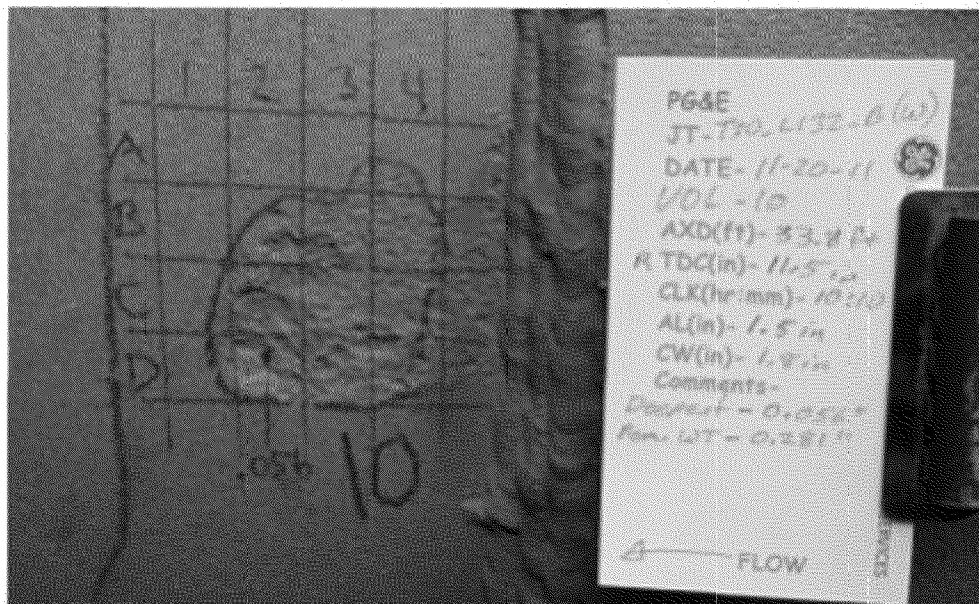 1 2 3 4
A
B
C
D
.056
10
PG&E
JT- T30_L132-B(W)
DATE- 11-20-11
VOL - 10
AXD(ft)- 33.8 ft
TDC(in)- 11.5 in
CLK(hr:mm)- 10:40
AL(in)- 1.5 in
CW(in)- 1.8 in
Comments-
Deepest - 0.056"
Nom. WT - 0.281"
FLOW